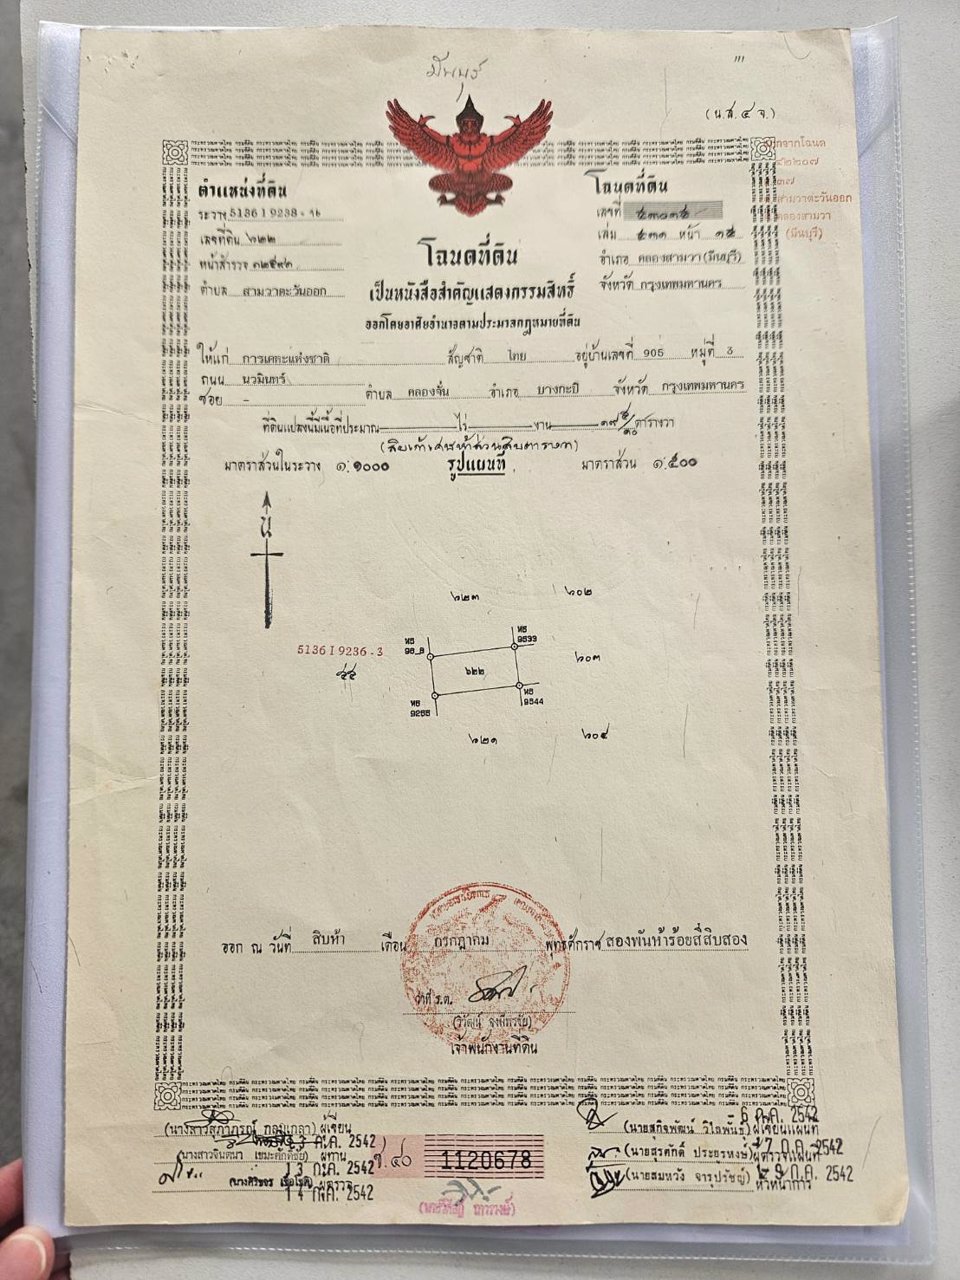 มีนบุรี
(น.ส.๔ จ.)
ตำแหน่งที่ดิน
ระวาง 5136 I 9238 - ๑๒
เลขที่ดิน ๖๒๒
หน้าสำรวจ
ตำบล สามวาตะวันออก
โฉนดที่ดิน
เลขที่
เล่ม หน้า ๑๕
อำเภอ คลองสามวา (มีนบุรี)
จังหวัด กรุงเทพมหานคร
แยกจากโฉนด
สามวาตะวันออก
คลองสามวา
(มีนบุรี)
โฉนดที่ดิน
เป็นหนังสือสำคัญแสดงกรรมสิทธิ์
ออกโดยอาศัยอำนาจตามประมวลกฎหมายที่ดิน
ให้แก่ การเคหะแห่งชาติ สัญชาติ ไทย อยู่บ้านเลขที่ 905 หมู่ที่ 3
ถนน นวมินทร์
ซอย - ตำบล คลองจั่น อำเภอ บางกะปิ จังหวัด กรุงเทพมหานคร
ที่ดินแปลงนี้มีเนื้อที่ประมาณ ไร่ งาน ๑๙ ๕/๑๐ ตารางวา
(สิบเก้าเศษห้าส่วนสิบตารางวา)
มาตราส่วนในระวาง ๑:๑๐๐๐ รูปแผนที่ มาตราส่วน ๑:๕๐๐
น
๖๒๓ ๖๐๒
หร 9533
5136 I 9236 - 3
๖๒๒ ๖๐๓
หร 9255
หร 9544
๖๒๑ ๖๐๔
ออก ณ วันที่ สิบห้า เดือน กรกฎาคม พุทธศักราช สองพันห้าร้อยสี่สิบสอง
ว่าที่ ร.ต.
เจ้าพนักงานที่ดิน
(นางสาวสุภาภรณ์ กลมเกลา) ผู้เขียน
13 ก.ค. 2542
(นางสาวจินตนา ) ผู้ทาน
13 ก.ค. 2542
ผู้ตรวจ
14 ก.ค. 2542
1120678
6 ก.ค. 2542
(นายสุกิจพัฒน์ วิไลพันธุ์) ผู้เขียนแผนที่
ก.ค. 2542
(นายสุรศักดิ์ ประยรหงษ์) ผู้ตรวจแผนที่
ก.ค. 2542
(นายสมหวัง จารุปรัชญ์) หัวหน้าการ